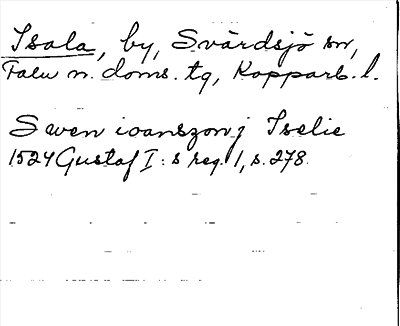 Isala, by, Svärdsjö sn,
Falu n. doms. tg, Kopparb. l.
Swen ioanszon j Iselie
1524 Gustaf I:s reg. 1, s. 278.